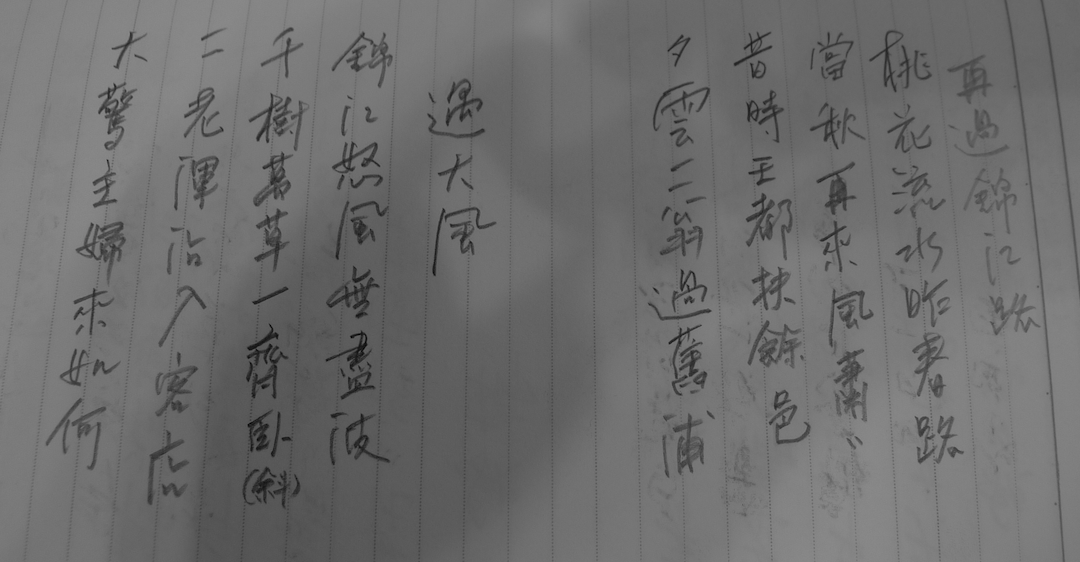 再過錦江路
桃花流水昨春路
當秋再來風蕭〃
昔時王都扶餘邑
夕雲二翁過舊浦
遇大風
錦江怒風無盡波
千樹萬草一齊臥(斜)
二老渾沾入客店
大驚主婦來如何